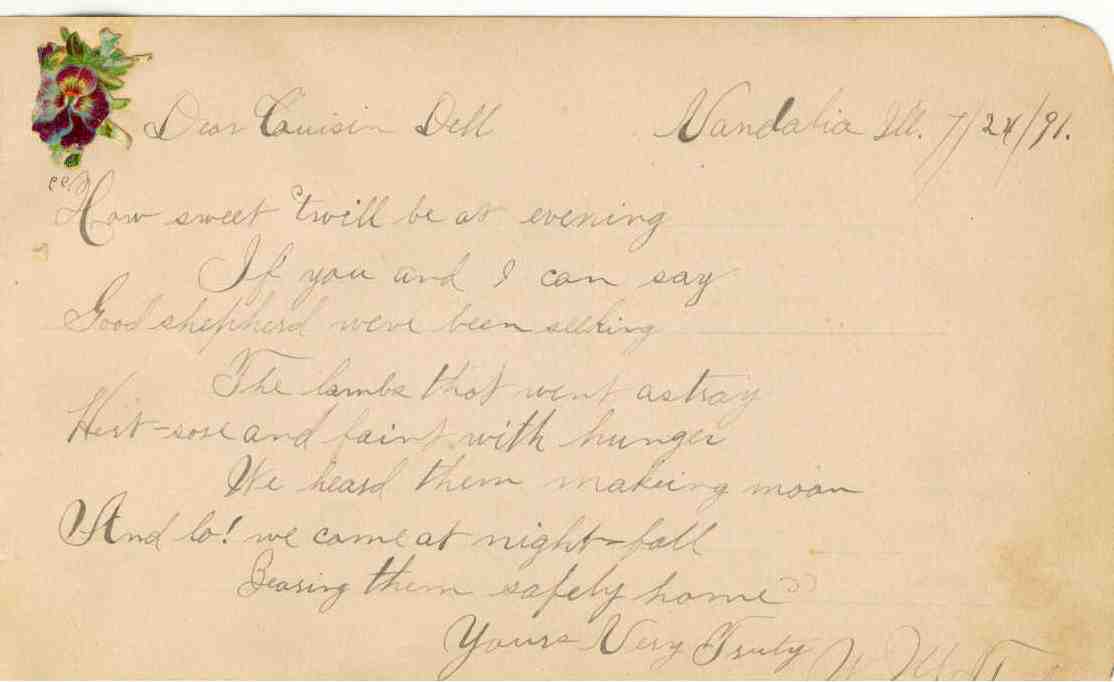 Dear Cousin Dell Vandalia Ill. 7/24/91.
"How sweet 'twill be at evening
If you and I can say
Good shepherd weve been seeking
The lambs that went astray
Hert-sore and faint with hunger
We heard them makeing moan
And lo! we come at night-fall
Bearing them safely home"
Yours Very Truly